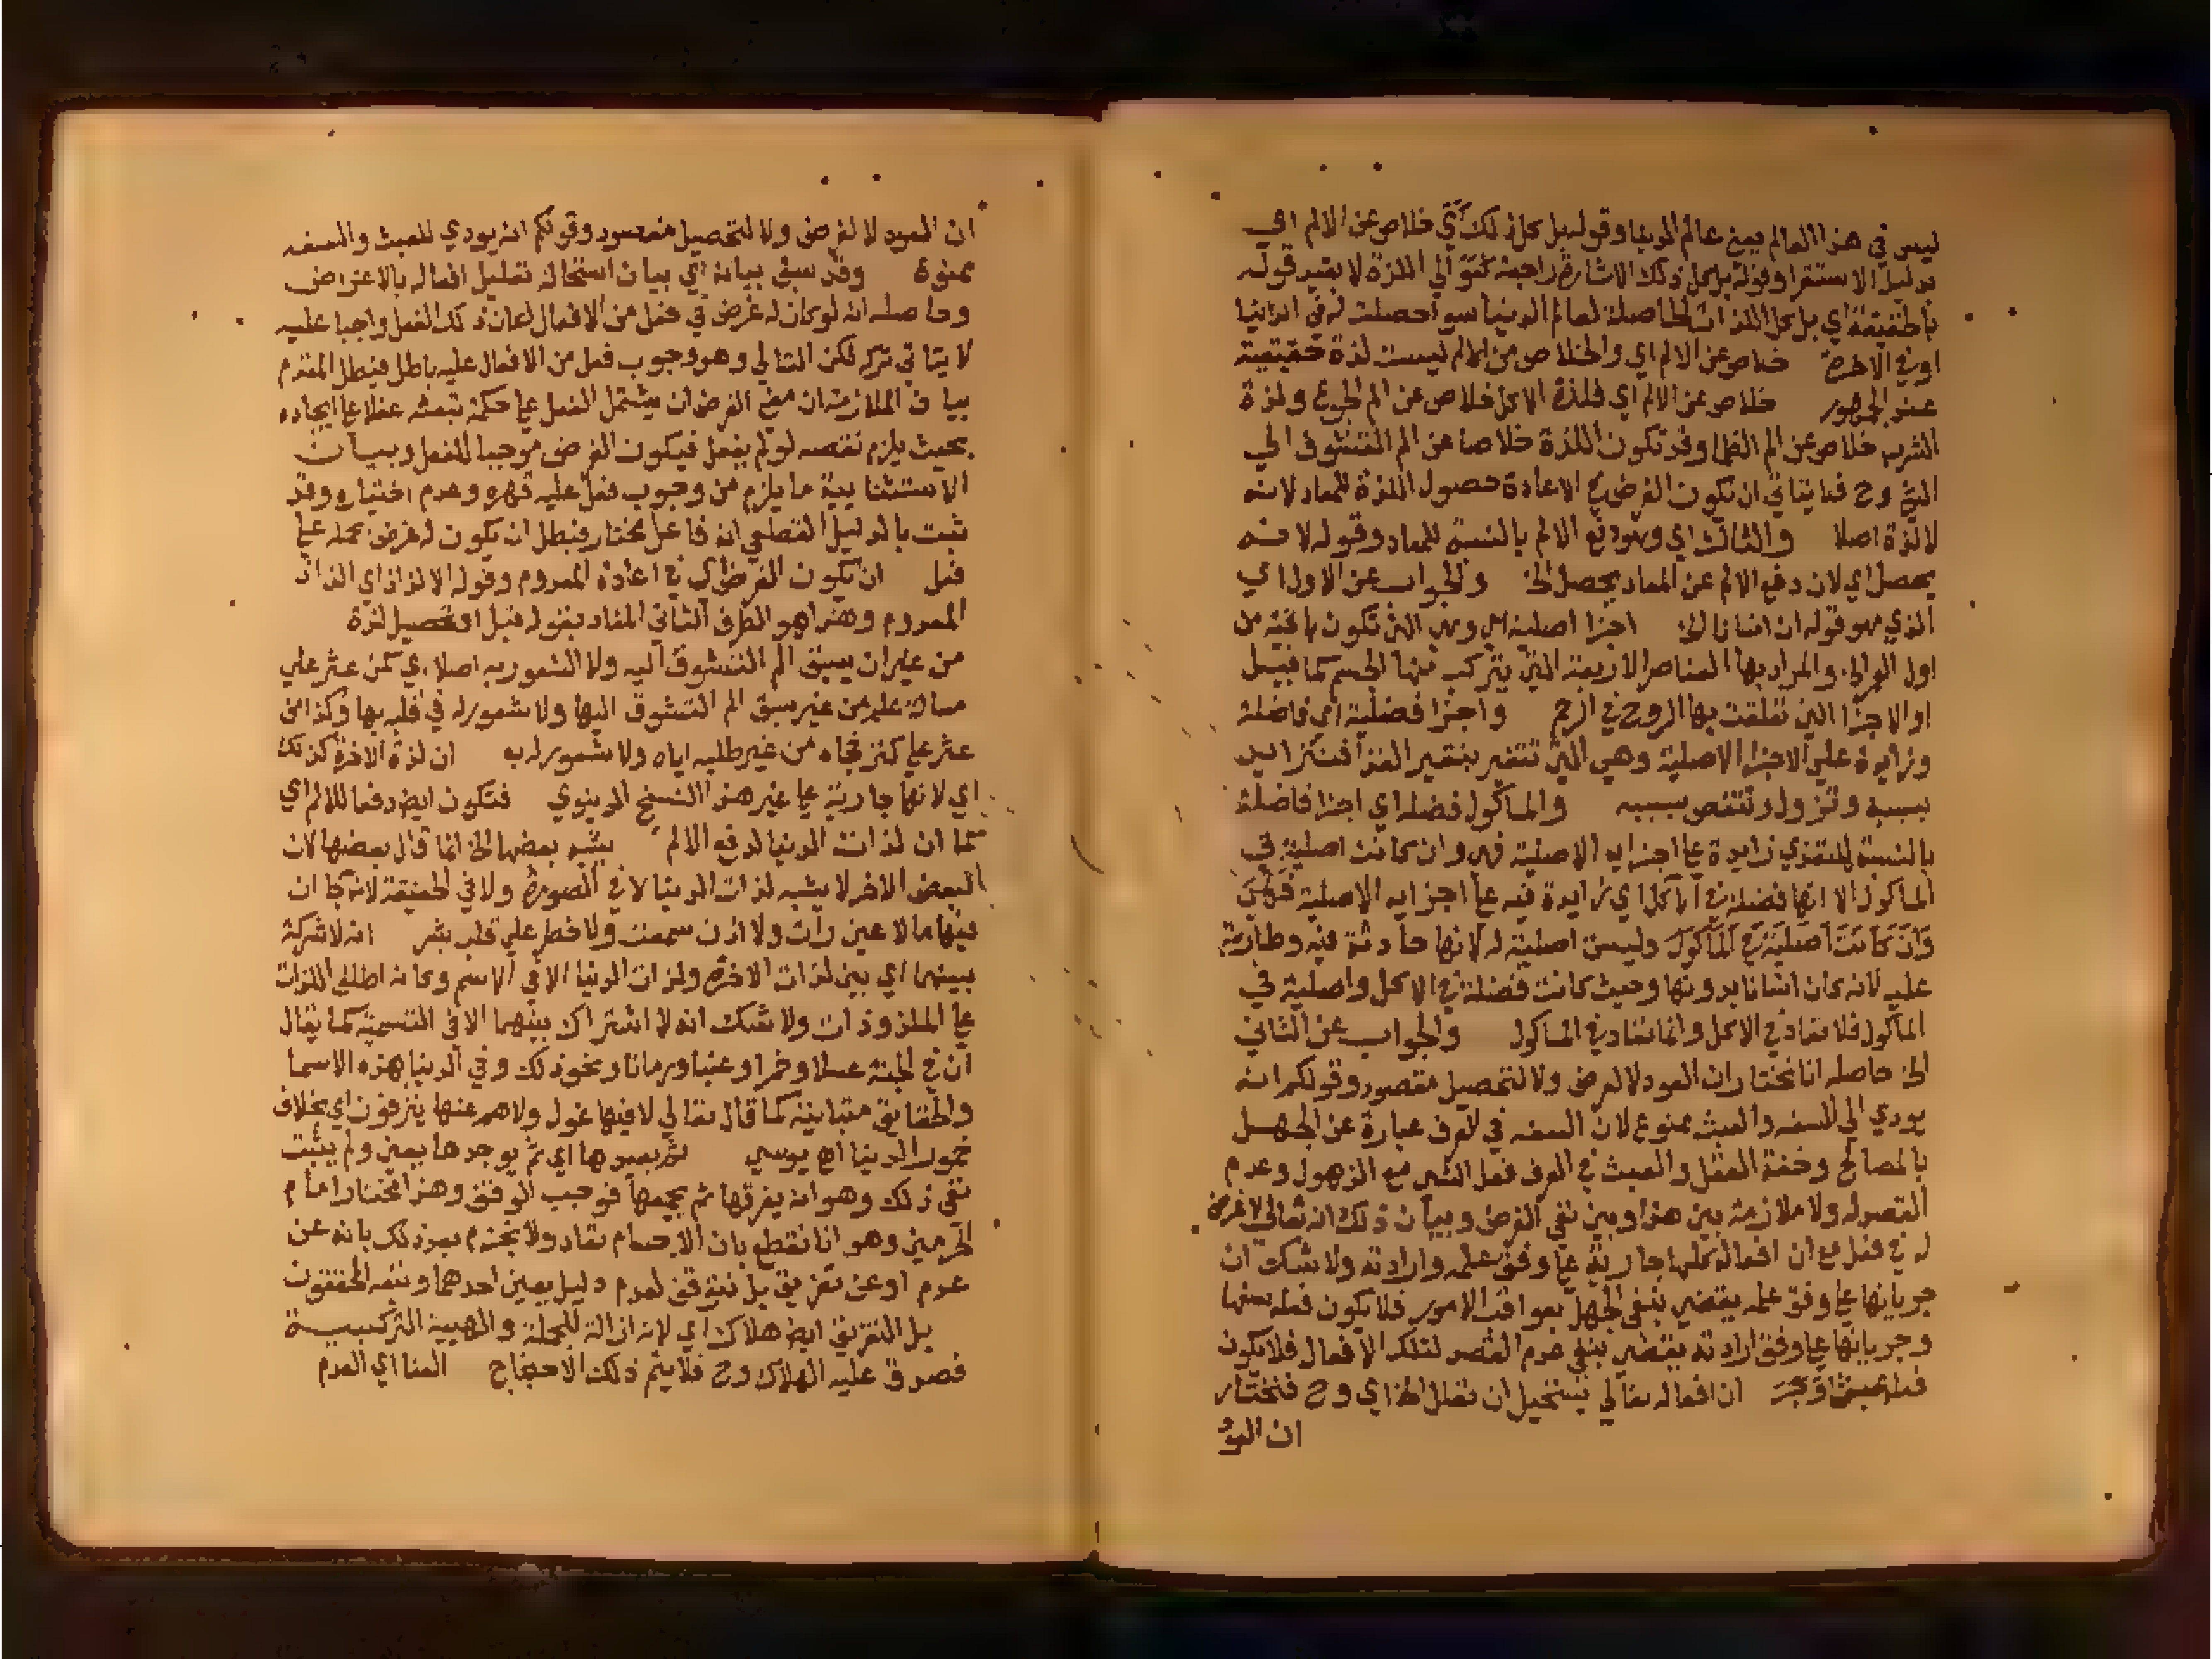 ليس في هذا العالم يعني عالم الدنيا وقوله بل كل ذلك أي خلاص عن الالم اي
بدليل الاستقرا وقوله بل كل ذلك الاشارة راجعة الي اللذة لا بقيد قوله
بالحقيقة اي بل كل اللذات الحاصلة لعالم الدنيا سوا حصلت له في الدنيا
او في الاخرة خلاص عن الالم اي والخلاص من الالم ليست لذة حقيقية
عند الجمهور خلاص عن الالم اي فلذة الاكل خلاص عن الم الجوع ولذة
الشرب خلاص عن الم الظما وقد تكون اللذة خلاصا عن الم التشوف الي
الشي وح فما يتاتي ان يكون الغرض في الاعادة حصول اللذة للمعاد لانه
لا لذة اصلا والثالث اي وهو دفع الالم بالنسبة للمعاد وقوله لانه
يحصل اي لان دفع الالم عن المعاد يحصل الخ والجواب عن الاول اي
الذي هو قوله ان انسانا الخ اجزا اصلية اي وهي التي تكون باقية من
اول العمر الخ والمراد بها العناصر الاربعة التي يتركب منها الجسم كما قيل
او الاجزا التي تعلقت بها الروح في الرحم واجزا فضلية اي فاضلة
وزايدة علي الاجزا الاصلية وهي التي تتغير بتغير الغذا فتتزايد
بسببه وتزول وتنتقص بسببه والماكول فضلة اي اجزا فاضلة
بالنسبة للمتغذي زايدة علي اجزايه الاصلية فهي وان كانت اصلية في
الماكول الا انها فضلة في الاكل اي زايدة فيه علي اجزايه الاصلية فهي
وان كانت اصلية في الماكول وليست اصلية له لانها حادثة فيه وطارية
عليه لانه كان انسانا بدونها وحيث كانت فضلة في الاكل واصلية في
الماكول فلا تعاد في الاكل وانما تعاد في الماكول والجواب عن الثاني
الخ حاصله انا نختار ان العود لا لغرض ولا لتحصيل مقصود وقولكم انه
يودي الي السفه والعبث ممنوع لان السفه في العرف عبارة عن الجهل
بالمصالح وخفة العقل والعبث في العرف فعل الشي مع الذهول وعدم
القصد له ولا ملازمة بين هذا وبين نفي الغرض وبيان ذلك انه تعالي لا غرض
له في فعل مع ان افعاله كلها جارية علي وفق علمه وارادته ولا شك ان
جريانها علي وفق علمه يقتضي بنفي الجهل بعواقب الامور فلا يكون فعله سفها
وجريانها علي وفق ارادته يقتضي بنفي عدم القصد لتلك الافعال فلا يكون
فعله عبثا ان افعاله تعالي يستحيل ان تعلل الخ اي وح فنختار
ان العو
ان العود لا لغرض ولا لتحصيل مقصود وقولكم انه يودي للعبث والسفه
ممنوع وقد سبق بيانه اي بيان استحالة تعليل افعاله بالاغراض
وحاصله انه لو كان له غرض في فعل من الافعال لكان ذلك الفعل واجبا عليه
لا يتاتي تركه لكن التالي وهو وجوب فعل من الافعال عليه باطل فبطل المقدم
بيان الملازمة ان معني الغرض ان يشتمل الفعل علي حكمة تبعثه عقلا علي ايجاده
بحيث يلزم نقصه لو لم يفعل فيكون الغرض موجبا للفعل وبيان
الاستثنايية ما يلزم من وجوب فعل عليه قهره وعدم اختياره وقد
ثبت بالدليل القطعي انه فاعل مختار فبطل ان يكون له غرض يحمله علي
فعل ان يكون الغرض اي في اعادة المعدوم وقوله الالذاذ اي الذاذ
المعدوم وهذا هو الطرف الثاني المفاد بقوله قبل او تحصيل لذة
من غير ان يسبق الم التشوف اليه ولا الشعور به اصلا اي كمن عثر علي
مسالة علم من غير سبق الم التشوق اليها ولا شعور له في قلبه بها وكذا من
عثر علي كنز فجاه من غير طلبه اياه ولا شعور له به ان لذة الاخرة كذلك
اي لانها جارية علي غير هذا النسخ الدنيوي فتكون ايض دفعا للالم اي
كما ان لذات الدنيا لدفع الالم يشبه بعضها الخ انما قال بعضها لان
البعض الاخر لا يشبه لذات الدنيا لا في الصورة ولا في الحقيقة لانه كما ان
فيها ما لا عين رات ولا اذن سمعت ولا خطر علي قلب بشر انه لا شركة
بينهما اي بين لذات الاخرة ولذات الدنيا الا في الاسم وكانه اطلق اللذات
علي الملذوذات ولا شك انه لا اشتراك بينهما الا في التسمية كما يقال
ان في الجنة عسلا وخمرا وعنبا ورمانا ونحو ذلك وفي الدنيا هذه الاسما
والحقايق متباينة كما قال تعالي لا فيها غول ولا هم عنها ينزفون اي بخلاف
خمور الدنيا اهـ يوسي ثم يعيدها اي ثم يوجدها بعينه ولم يثبت
نفي ذلك وهو انه يفرقها ثم يجمعها فوجب الوقف وهذا مختار امام
الحرمين وهو انا نقطع بان الاجسام تعاد ولا نجزم بعد ذلك بانه عن
عدم او عن تفريق بل نتوقف لعدم دليل يعين احدهما ونقه المحققون
بل التفريق ايض هلاك اي لانه ازالة للجملة والهيية التركيبية
فصدق عليه الهلاك وح فلا يتم ذلك الاحتجاج الفنا اي العدم